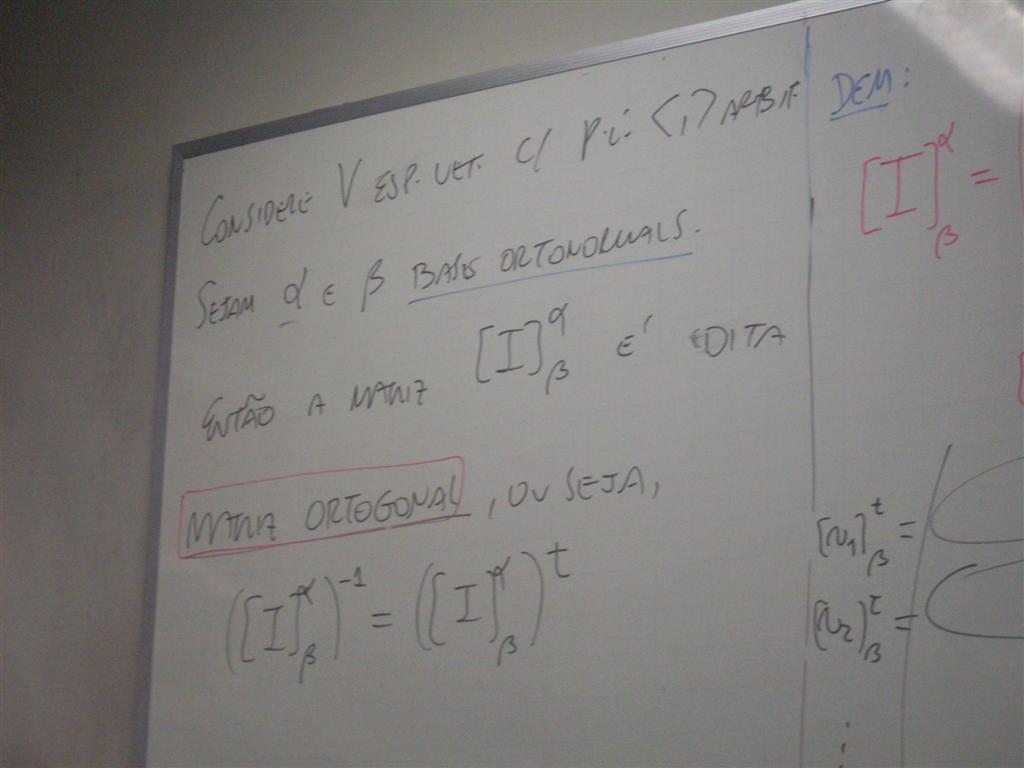 CONSIDERE V ESP. VET. C/ P.i. <,> ARBIT
SEJAM α E β BASES ORTONORMAIS.
ENTÃO A MATRIZ [I]^α_β E' DITA
MATRIZ ORTOGONAL, OU SEJA,
([I]^α_β)^-1 = ([I]^α_β)^t
DEM:
[I]^α_β =
[v_1]^t_β =
[v_2]^t_β =
⋮